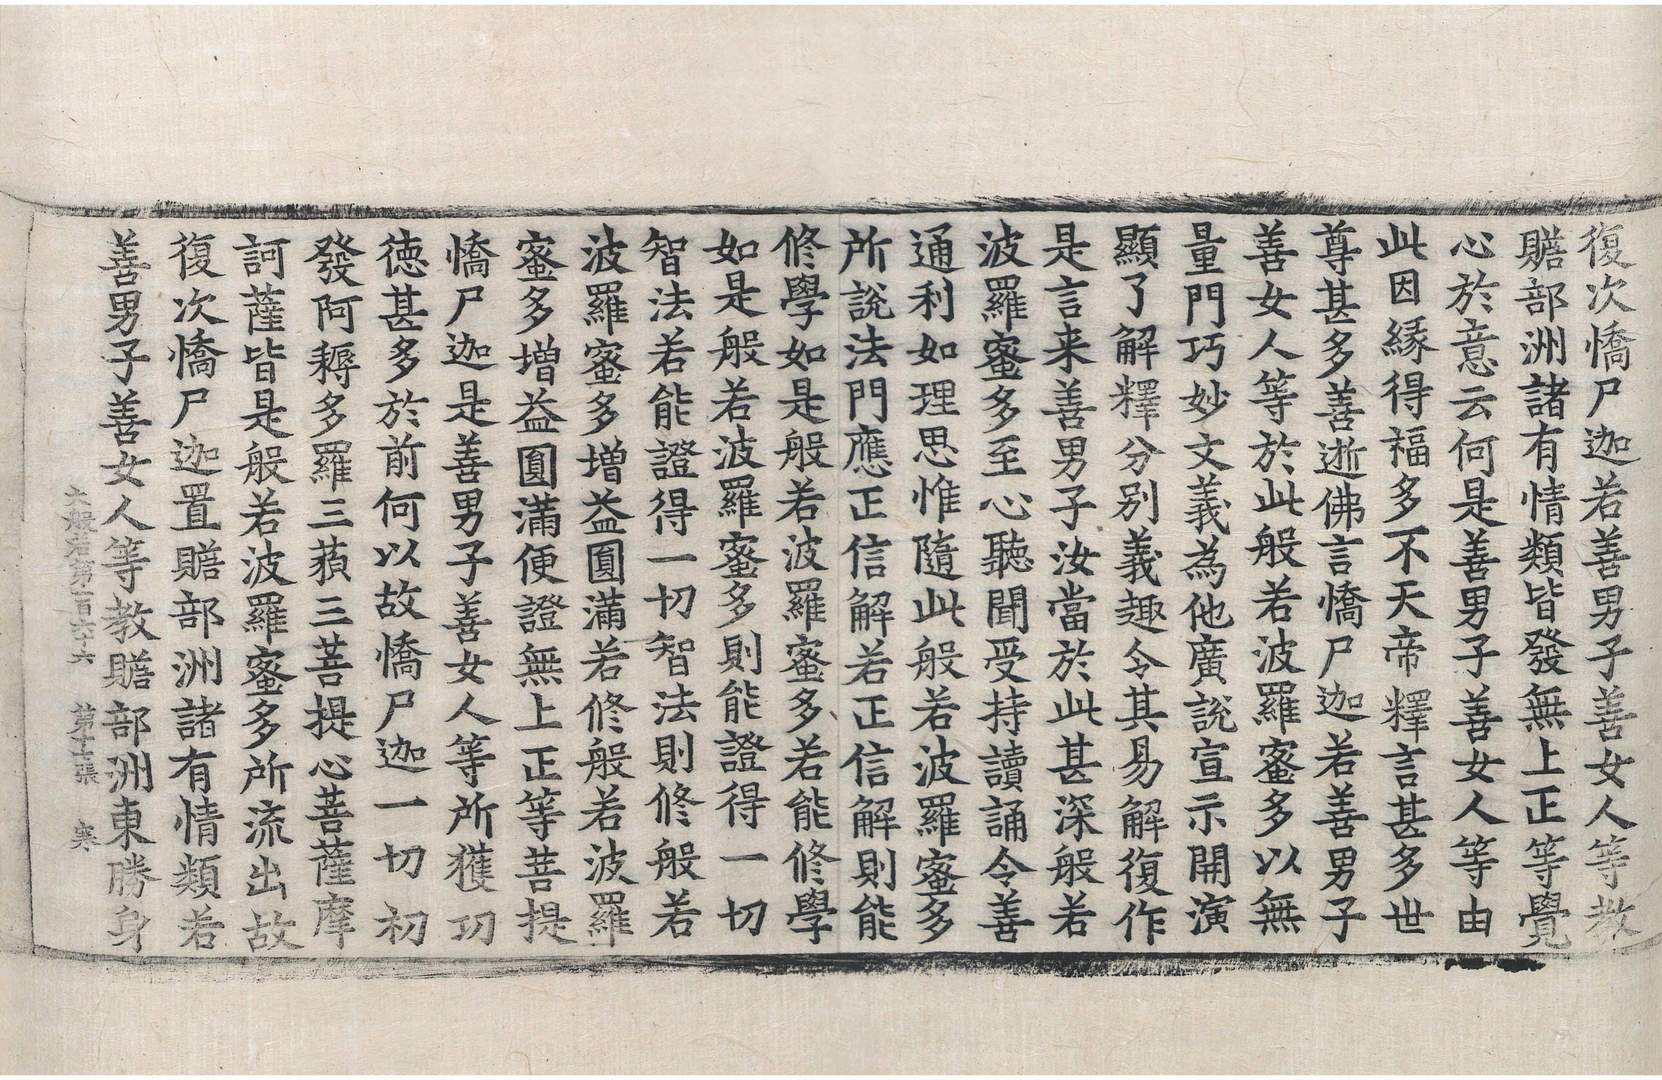 復次憍尸迦若善男子善女人等教
贍部洲諸有情類皆發無上正等覺
心於意云何是善男子善女人等由
此因緣得福多不天帝釋言甚多世
尊甚多善逝佛言憍尸迦若善男子
善女人等於此般若波羅蜜多以無
量門巧妙文義為他廣說宣示開演
顯了解釋分別義趣令其易解復作
是言来善男子汝當於此甚深般若
波羅蜜多至心聽聞受持讀誦令善
通利如理思惟隨此般若波羅蜜多
所說法門應正信解若正信解則能
修學如是般若波羅蜜多若能修學
如是般若波羅蜜多則能證得一切
智法若能證得一切智法則修般若
波羅蜜多增益圓滿若修般若波羅
蜜多增益圓滿便證無上正等菩提
憍尸迦是善男子善女人等所獲功
德甚多於前何以故憍尸迦一切初
發阿耨多羅三藐三菩提心菩薩摩
訶薩皆是般若波羅蜜多所流出故
復次憍尸迦置贍部洲諸有情類若
善男子善女人等教贍部洲東勝身
大般若第一百六十六 第十七張 寒